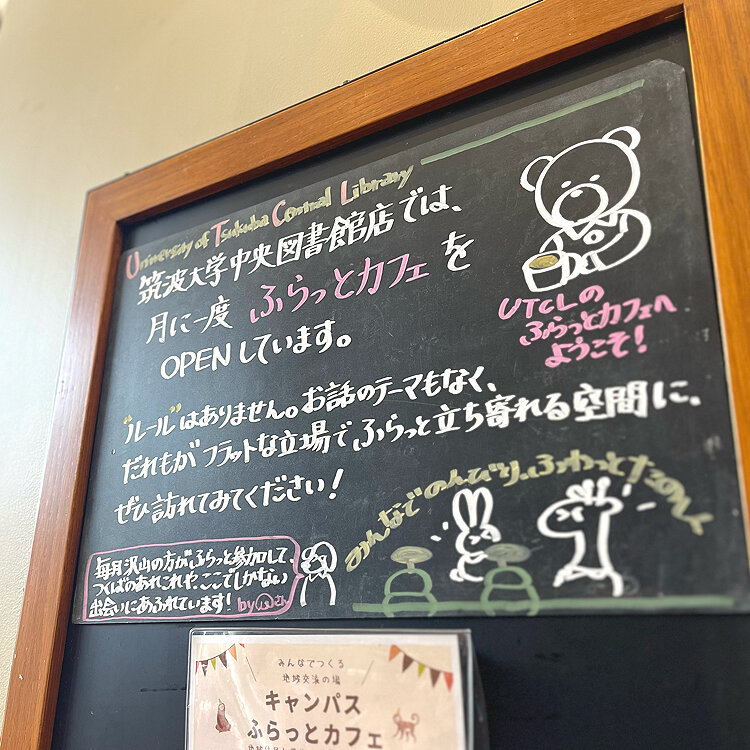 University of Tsukuba Central Library
筑波大学中央図書館店では、
月に一度 ふらっとカフェを
OPENしています。
UTCLの
ふらっとカフェへ
ようこそ!
"ルール"はありません。お話のテーマもなく、
だれもがフラットな立場でふらっと立ち寄れる空間に、
ぜひ訪れてみてください!
みんなでのんびり、ふわっと
毎月沢山の方がふらっと参加して、
つくばのあれこれや、ここでしかない
出会いにあふれています!
みんなでつくる
地域交流の場
キャンパス
ふらっとカフェ